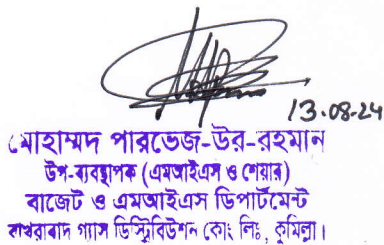 13.08-24
মোহাম্মদ পারভেজ-উর-রহমান
উপ-ব্যবস্থাপক (এমআইএস ও শেয়ার)
বাজেট ও এমআইএস ডিপার্টমেন্ট
বাখরাবাদ গ্যাস ডিস্ট্রিবিউশন কোং লিঃ, কুমিল্লা।